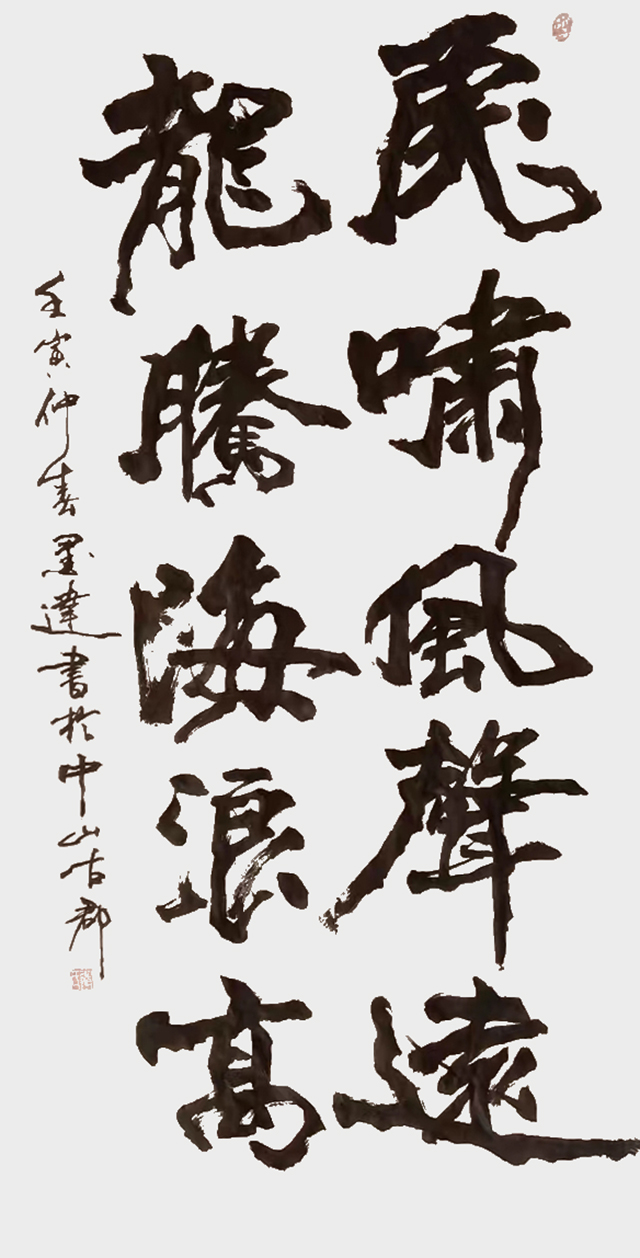 虎啸風聲遠
龍騰海浪高
壬寅仲春墨達書於中山古郡